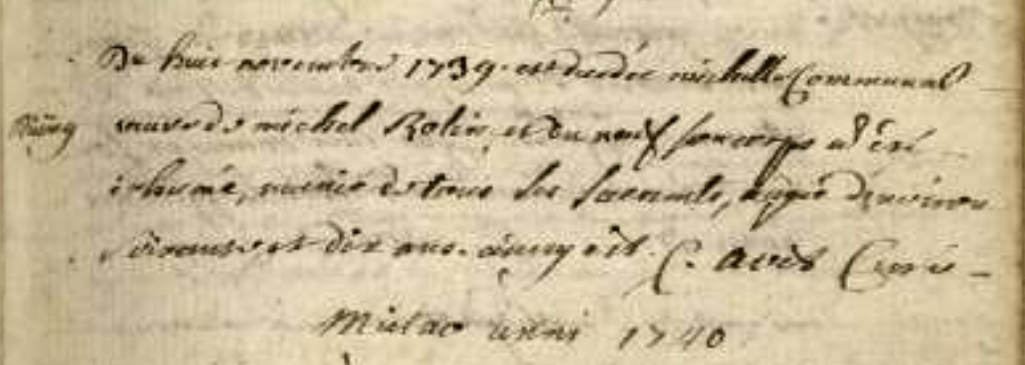 Du huit novembre 1739. est decedée michelle Communal
veuve de michel Rolin, et du neuf son corps a été
inhumé, munie de tous les sacrements, aagée d'environ
soixante et dix ans. ainsy est. C. avit Curé
1740